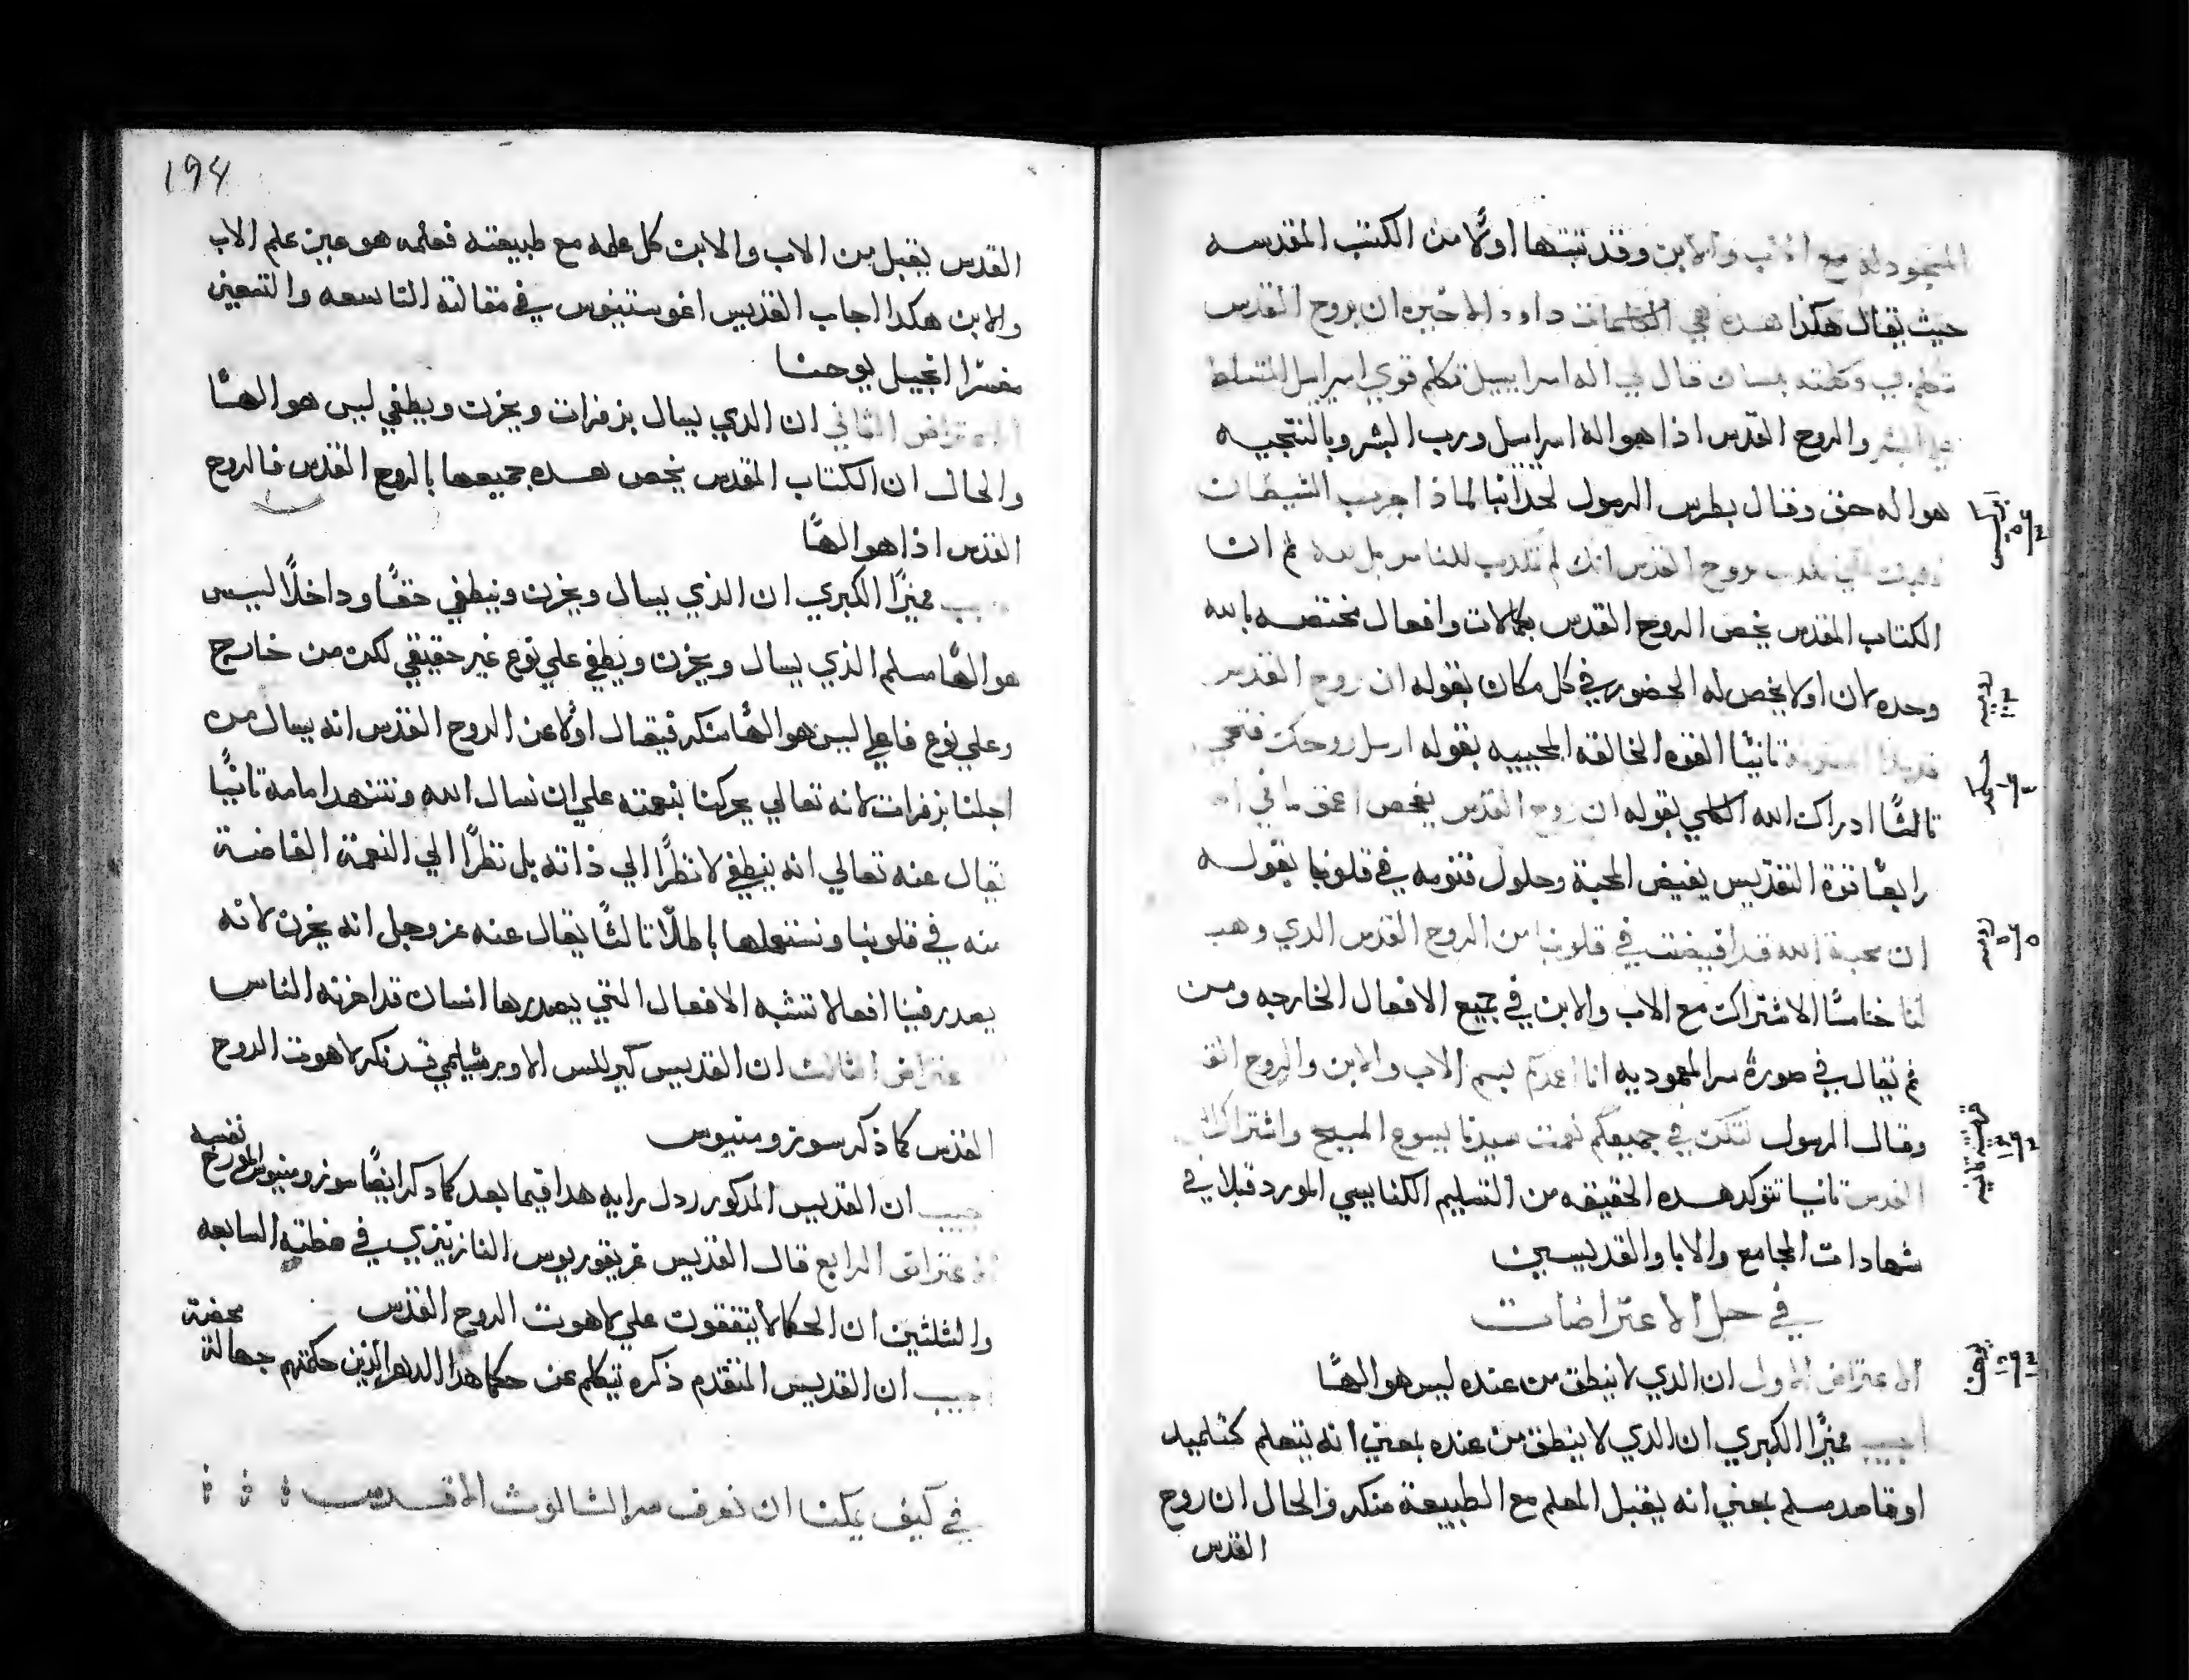 المسجود له مع الاب والابن وقد نتبتها اولًا من الكتب المقدسه
حيث يقال هكذا هده هي الكلمات داود الاخيره ان بروح القدس
تكلم بي وكلمته بلساني قال لي اله اسراييل تكلم قوي اسراييل المتسلط
علي البشر والروح القدس اذا هو اله اسراييل ورب البشر وبالنتيجه
هو اله حق وقال بطرس الرسول لحنانيا لماذا جرب الشيطان
قلبك لتكدب بروح القدس انك لم تكدب للناس بل لله ثم ان
الكتاب المقدس يخص الروح القدس بكمالات وافعال مختصه بالله
وحده لان اولا يخص له الحضور في كل مكان بقوله ان روح القدس
ثانيًا القوه الخالقه المحييه بقوله ارسل روحك فتحيي
ثالثًا ادراك الله الكلي بقوله ان روح القدس يفحص اعمق ما في الله
رابعًا قوة التقديس بفيض المحبة وحلول قنومه في قلوبنا بقوله
ان محبة الله قد افيضت في قلوبنا من الروح القدس الدي وهب
لنا خامسًا الاشتراك مع الاب والابن في جميع الافعال الخارجه ومن
ثم يقال في صورة سر المعموديه انا اعمدك بسم الاب والابن والروح القدس
وقال الرسول لتكن في جميعكم نعمت سيدنا يسوع المسيح واشتراك
القدس تانيا تتوكد هده الحقيقه من التسليم الكنايسي المورد قبلا في
شهادات المجامع والابا والقديسين
في حل الاعتراضات
الاعتراض الاول ان الدي لا ينطق من عنده ليس هو الهًا
اجيب مميزًا الكبري ان الدي لا ينطق من عنده بمعني انه يتعلم كتلميد
او قاصد مسلم بمعني انه يقبل العلم مع الطبيعة منكر والحال ان روح
القدس
ابركسيس
روميه
حكمة
روميه
قرنتيه تانيه
يوحنا
194
القدس يقبل من الاب والابن كل علمه مع طبيعته فعلمه هو عين علم الاب
والابن هكدا اجاب القديس اغوستينوس في مقالته التاسعه والتسعين
مفسرًا انجيل يوحنا
الاعتراض الثاني ان الدي يسال بزفرات ويحزن ويطفي ليس هو الهًا
والحال ان الكتاب المقدس يخص هده جميعها بالروح القدس فالروح
القدس اذا هو الهًا
اجيب مميزًا الكبري ان الذي يسال ويحزن وينطفي حقًا وداخلًا ليس
هو الهًا مسلم الذي يسال ويحزن ويطفي علي نوع غير حقيقي لكن من خارج
وعلي نوع فاعلي ليس هو الهًا منكر فيقال اولًا عن الروح القدس انه يسال من
اجلنا بزفرات لانه تعالي يحركنا بنعمته علي ان نسال الله ونتنهد امامه تانيًا
يقال عنه تعالي انه ينطفي لا نظرًا الي ذاته بل نظرًا الي النعمة الفاضة
منه في قلوبنا ونستعملها باطلًا تالثًا يقال عنه عز وجل انه يحزن لانه
يصدر فينا افعالا تشبه الافعال التي يصدرها انسان قد احزنه الناس
الاعتراض الثالث ان القديس كيرللس الاورشليمي قد نكر لاهوت الروح
القدس كما ذكر سوزومنيوس
اجيب ان القديس المدكور ردل رايه هدا فيما بعد كما دكر ايضًا سوزومنيوس المورخ
نفسه
الاعتراض الرابع قال القديس غريغوريوس النازينزي في خطبته السابعه
والثلثين ان الحكما لا يتفقون علي لاهوت الروح القدس
اجيب ان القديس المتقدم ذكره يتكلم عن حكما هذا الدهر الذين حكمتهم جهالة
محضة
في كيف يمكننا ان نعرف سر الثالوث الاقدس